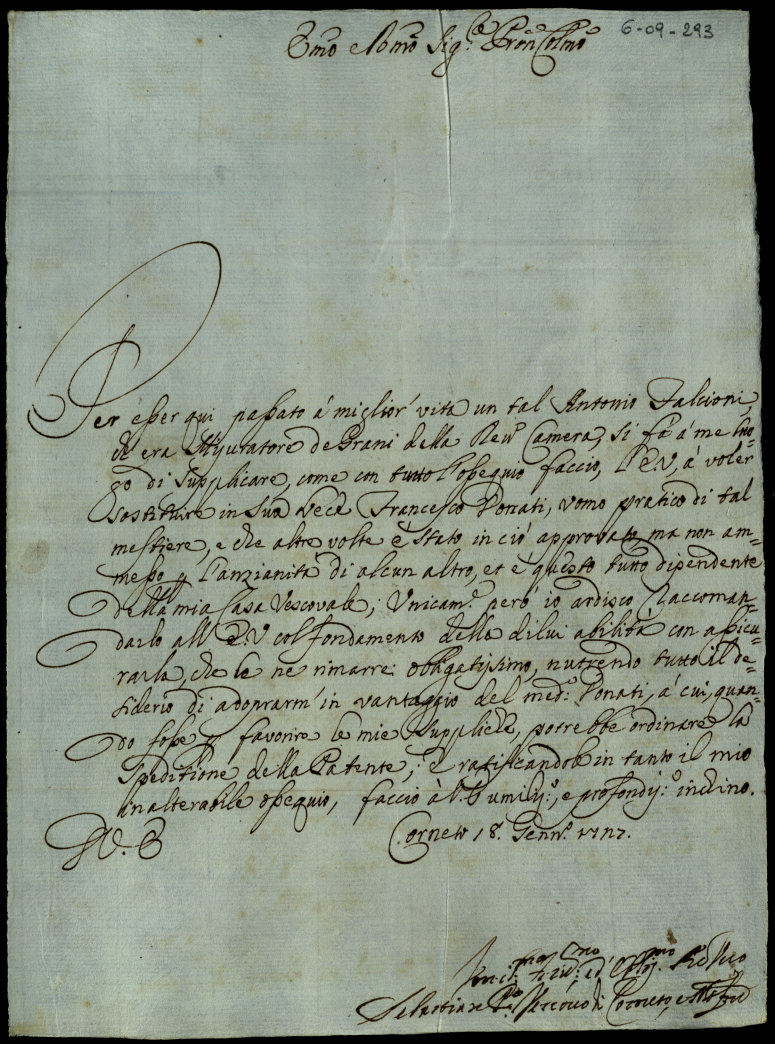 6-09-293
Emo e Rmo Sig.r Pron Colmo
Per esser qui passato à miglior vita un tal Antonio Falcioni,
che era Misuratore de Grani della Reu.a Camera, si fà à me luo-
go di supplicare, come con tutto l'ossequio faccio, l'E.V, à voler
sostituire in sua vece Francesco Donati, uomo pratico di tal
mestiere, e che altre volte è stato in ciò approvato, ma non am-
messo p l'anzianità di alcun altro, et è questo tutto dipendente
della mia Casa Vescovale; Unicam.e però io ardisco raccoman-
darlo all'E.V col fondamento della di lui abilità con assicu-
rarla, che le ne rimarrei obligatissimo, nutrendo tutto il de-
siderio di adoprarm' in vantaggio del med.o Donati, à cui, quan-
do fosse p favorire le mie suppliche, potrebbe ordinare la
speditione della Patente; e ratificandole in tanto il mio
inalterabile ossequio, faccio à V.E umiliss.o, e profondiss.o inchino.
D.V.E
Corneto 18. Genn.o 1717.
Sebastiano Vescovo di Corneto, e